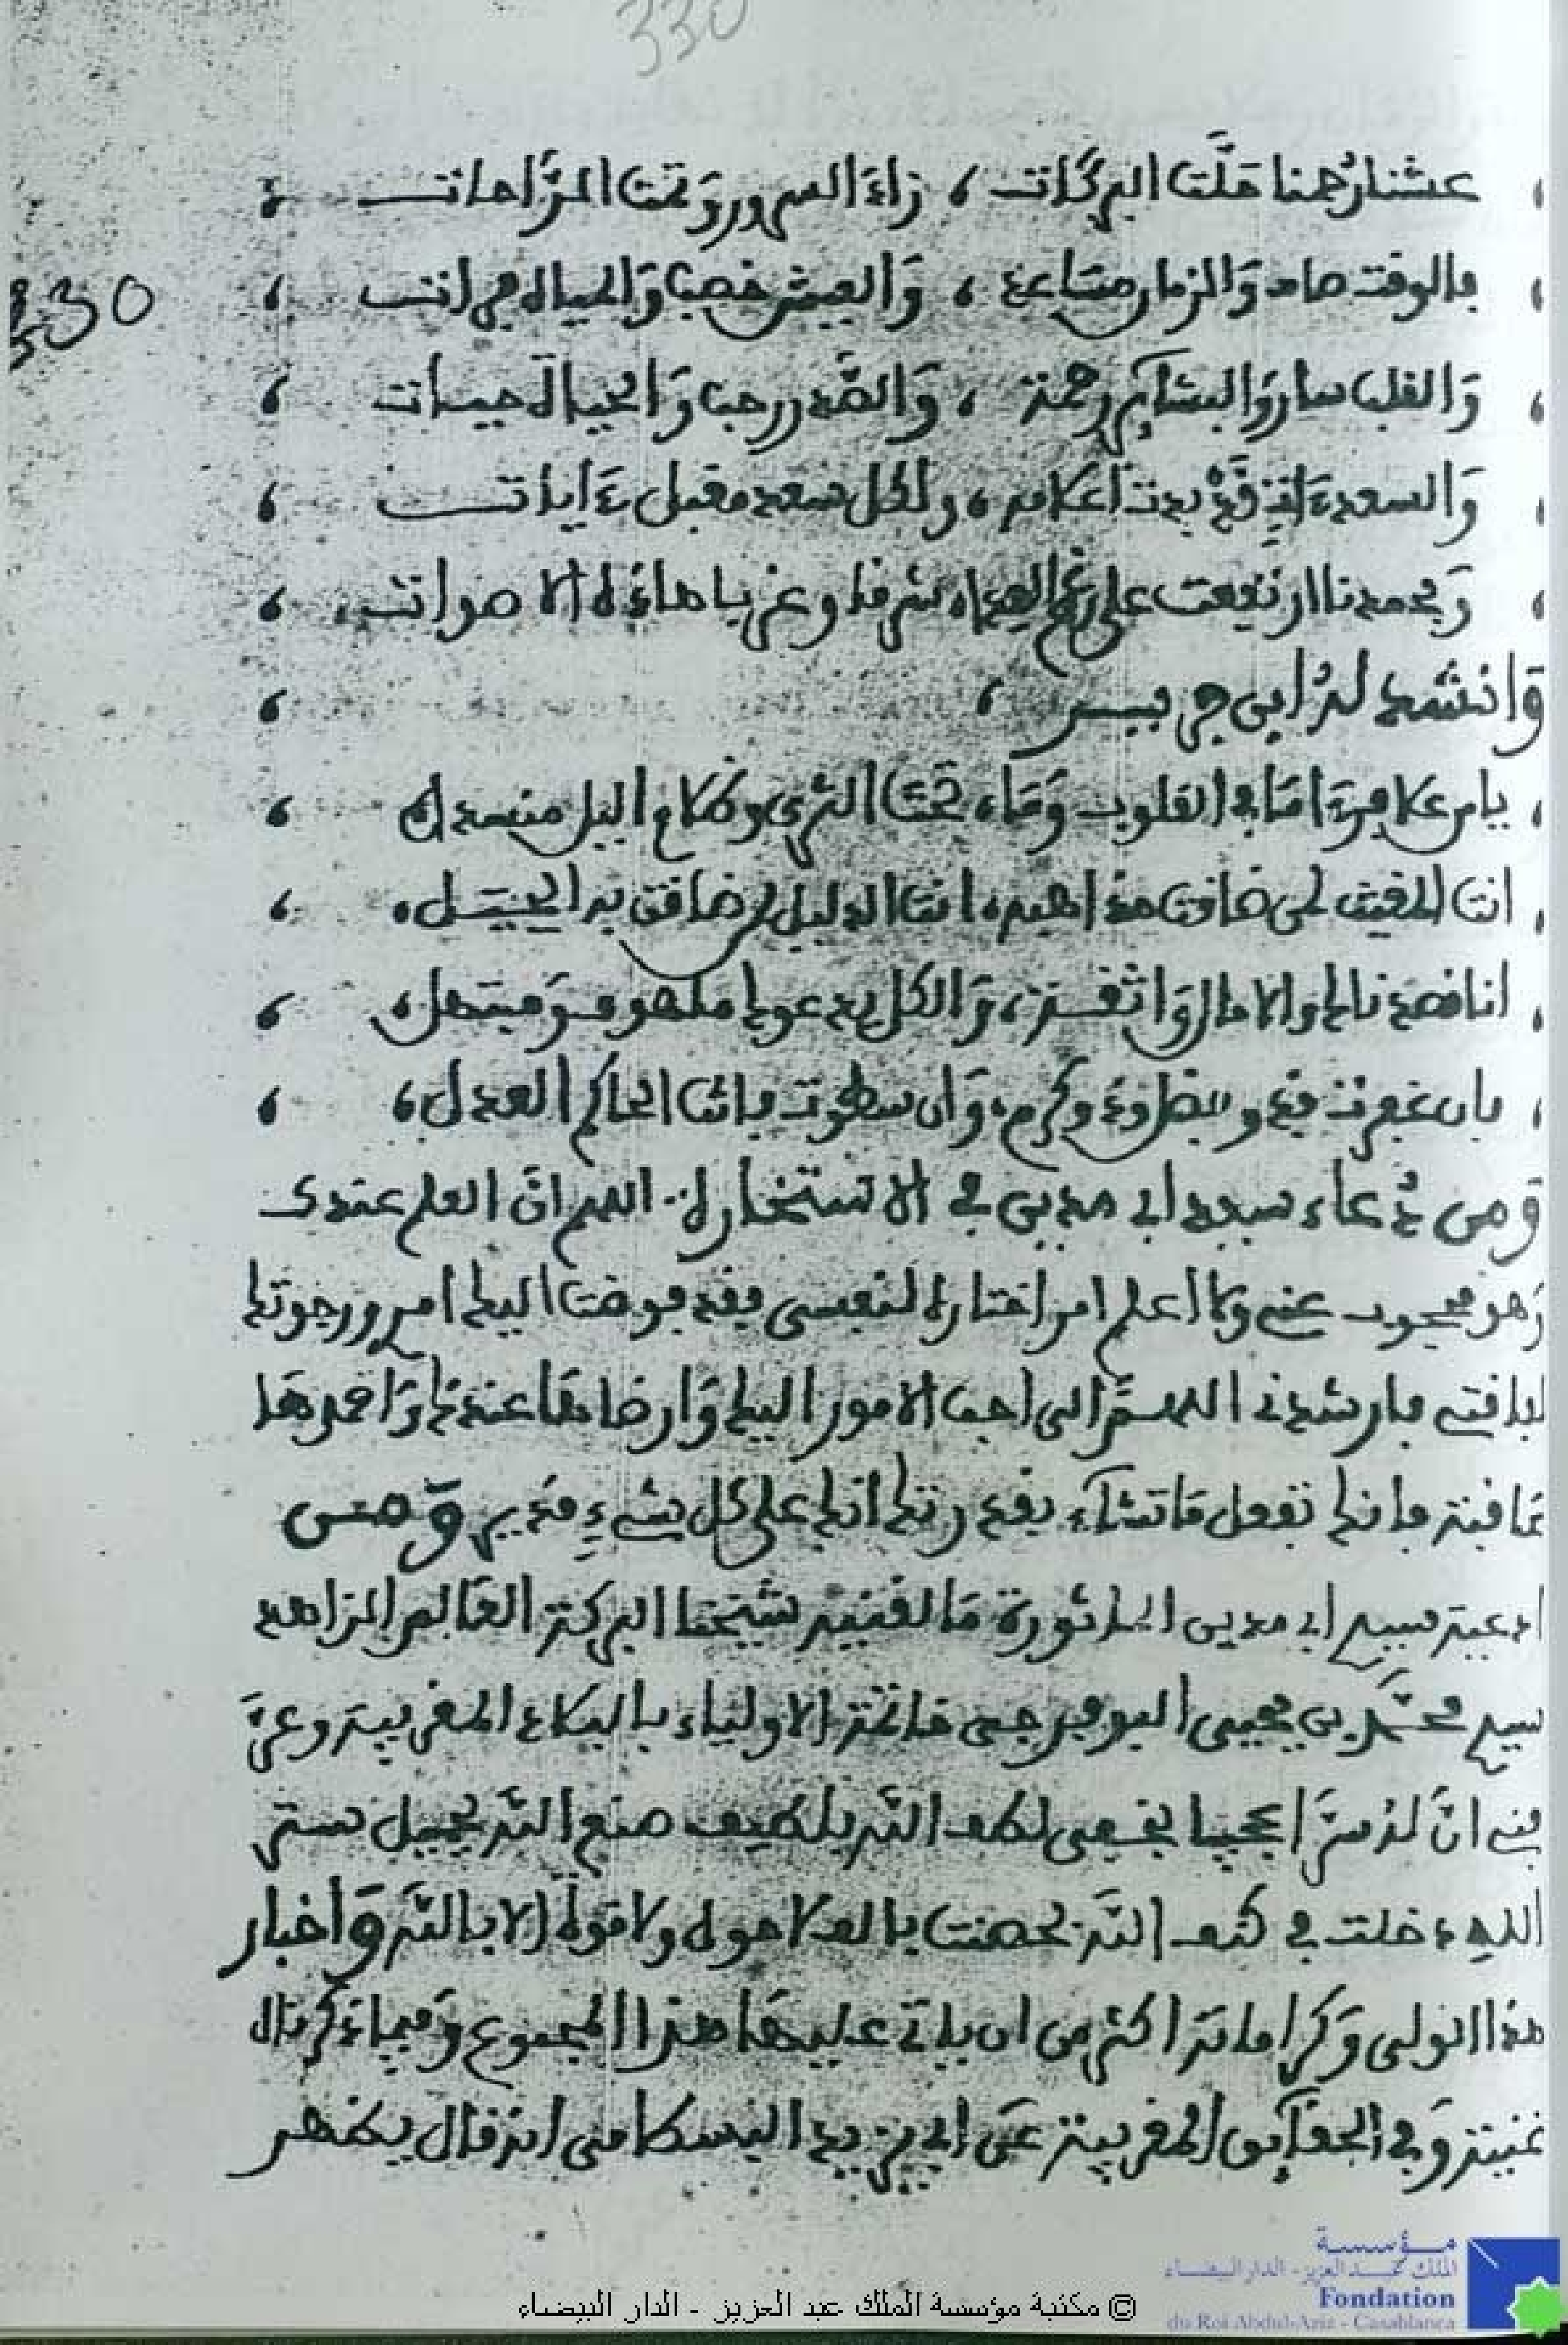 330
330
عشنا رحمنا حلّت البركات ، زاد السرور وتمت الراحات
فالوقت صاف والزمان مساعد ، والعيش خصب والحياة
والقلب سار والبشائر رحمة ، والصدر رحب والحيا
والسعد قد بدت اعلامه ، ولكل سعد مقبل ءايات
وبحمدنا ارتفعت على رغم العدا شرفا وغربا هاذه الاصوات
وانشد له ابن جرير
يا من علا فرءا ما في القلوب وما ، تحت الثرى وظلام اليل منسدل
انت المغيث لمن ضاقت مذاهبه ، انت الدليل لمن ضاقت به الحيل
انا قصدناك والامال واثقة ، والكل يدعوك ملهوف ومبتهل
فان عفوت فذو فضل وذو كرم ، وان سطوت فانت الحاكم العدل
ومن دعاء سيدي ابي مدين في الاستخارة اللهم ان العلم عندك
وهو محجوب عني ولا اعلم امرا اختاره لنفسي فقد فوضت اليك امري ورجوتك
لفاقتي فارشدني اللهم الى احب الامور اليك وارضاها عندك واحمدها
عاقبة فانك تفعل ما تشاء بقدرتك انك على كل شيء قدير ومن
ادعية سيدي ابي مدين المأثورة ما لقنيه شيخنا البركة العالم الزاهد
سيدي محمد بن يحيى خاتمة الاولياء بالبلاد المغربية
ان له سرا عجيبا بخفي لطف الله بلطيف صنع الله بجميل ستر
الله دخلت في كنف الله تحصنت بالف لا حول ولا قوة الا بالله واخبار
هذا الولي وكراماته اكثر من ان ياتي عليها هذا المجموع وفيما ذكرناه
غنية وفي الحقايق المغربية عن ابي يزيد البسطامي انه قال يظهر
مؤسسة
الملك عبد العزيز - الدار البيضاء
Fondation
du Roi Abdul-Aziz - Casablanca
© مكتبة مؤسسة الملك عبد العزيز - الدار البيضاء